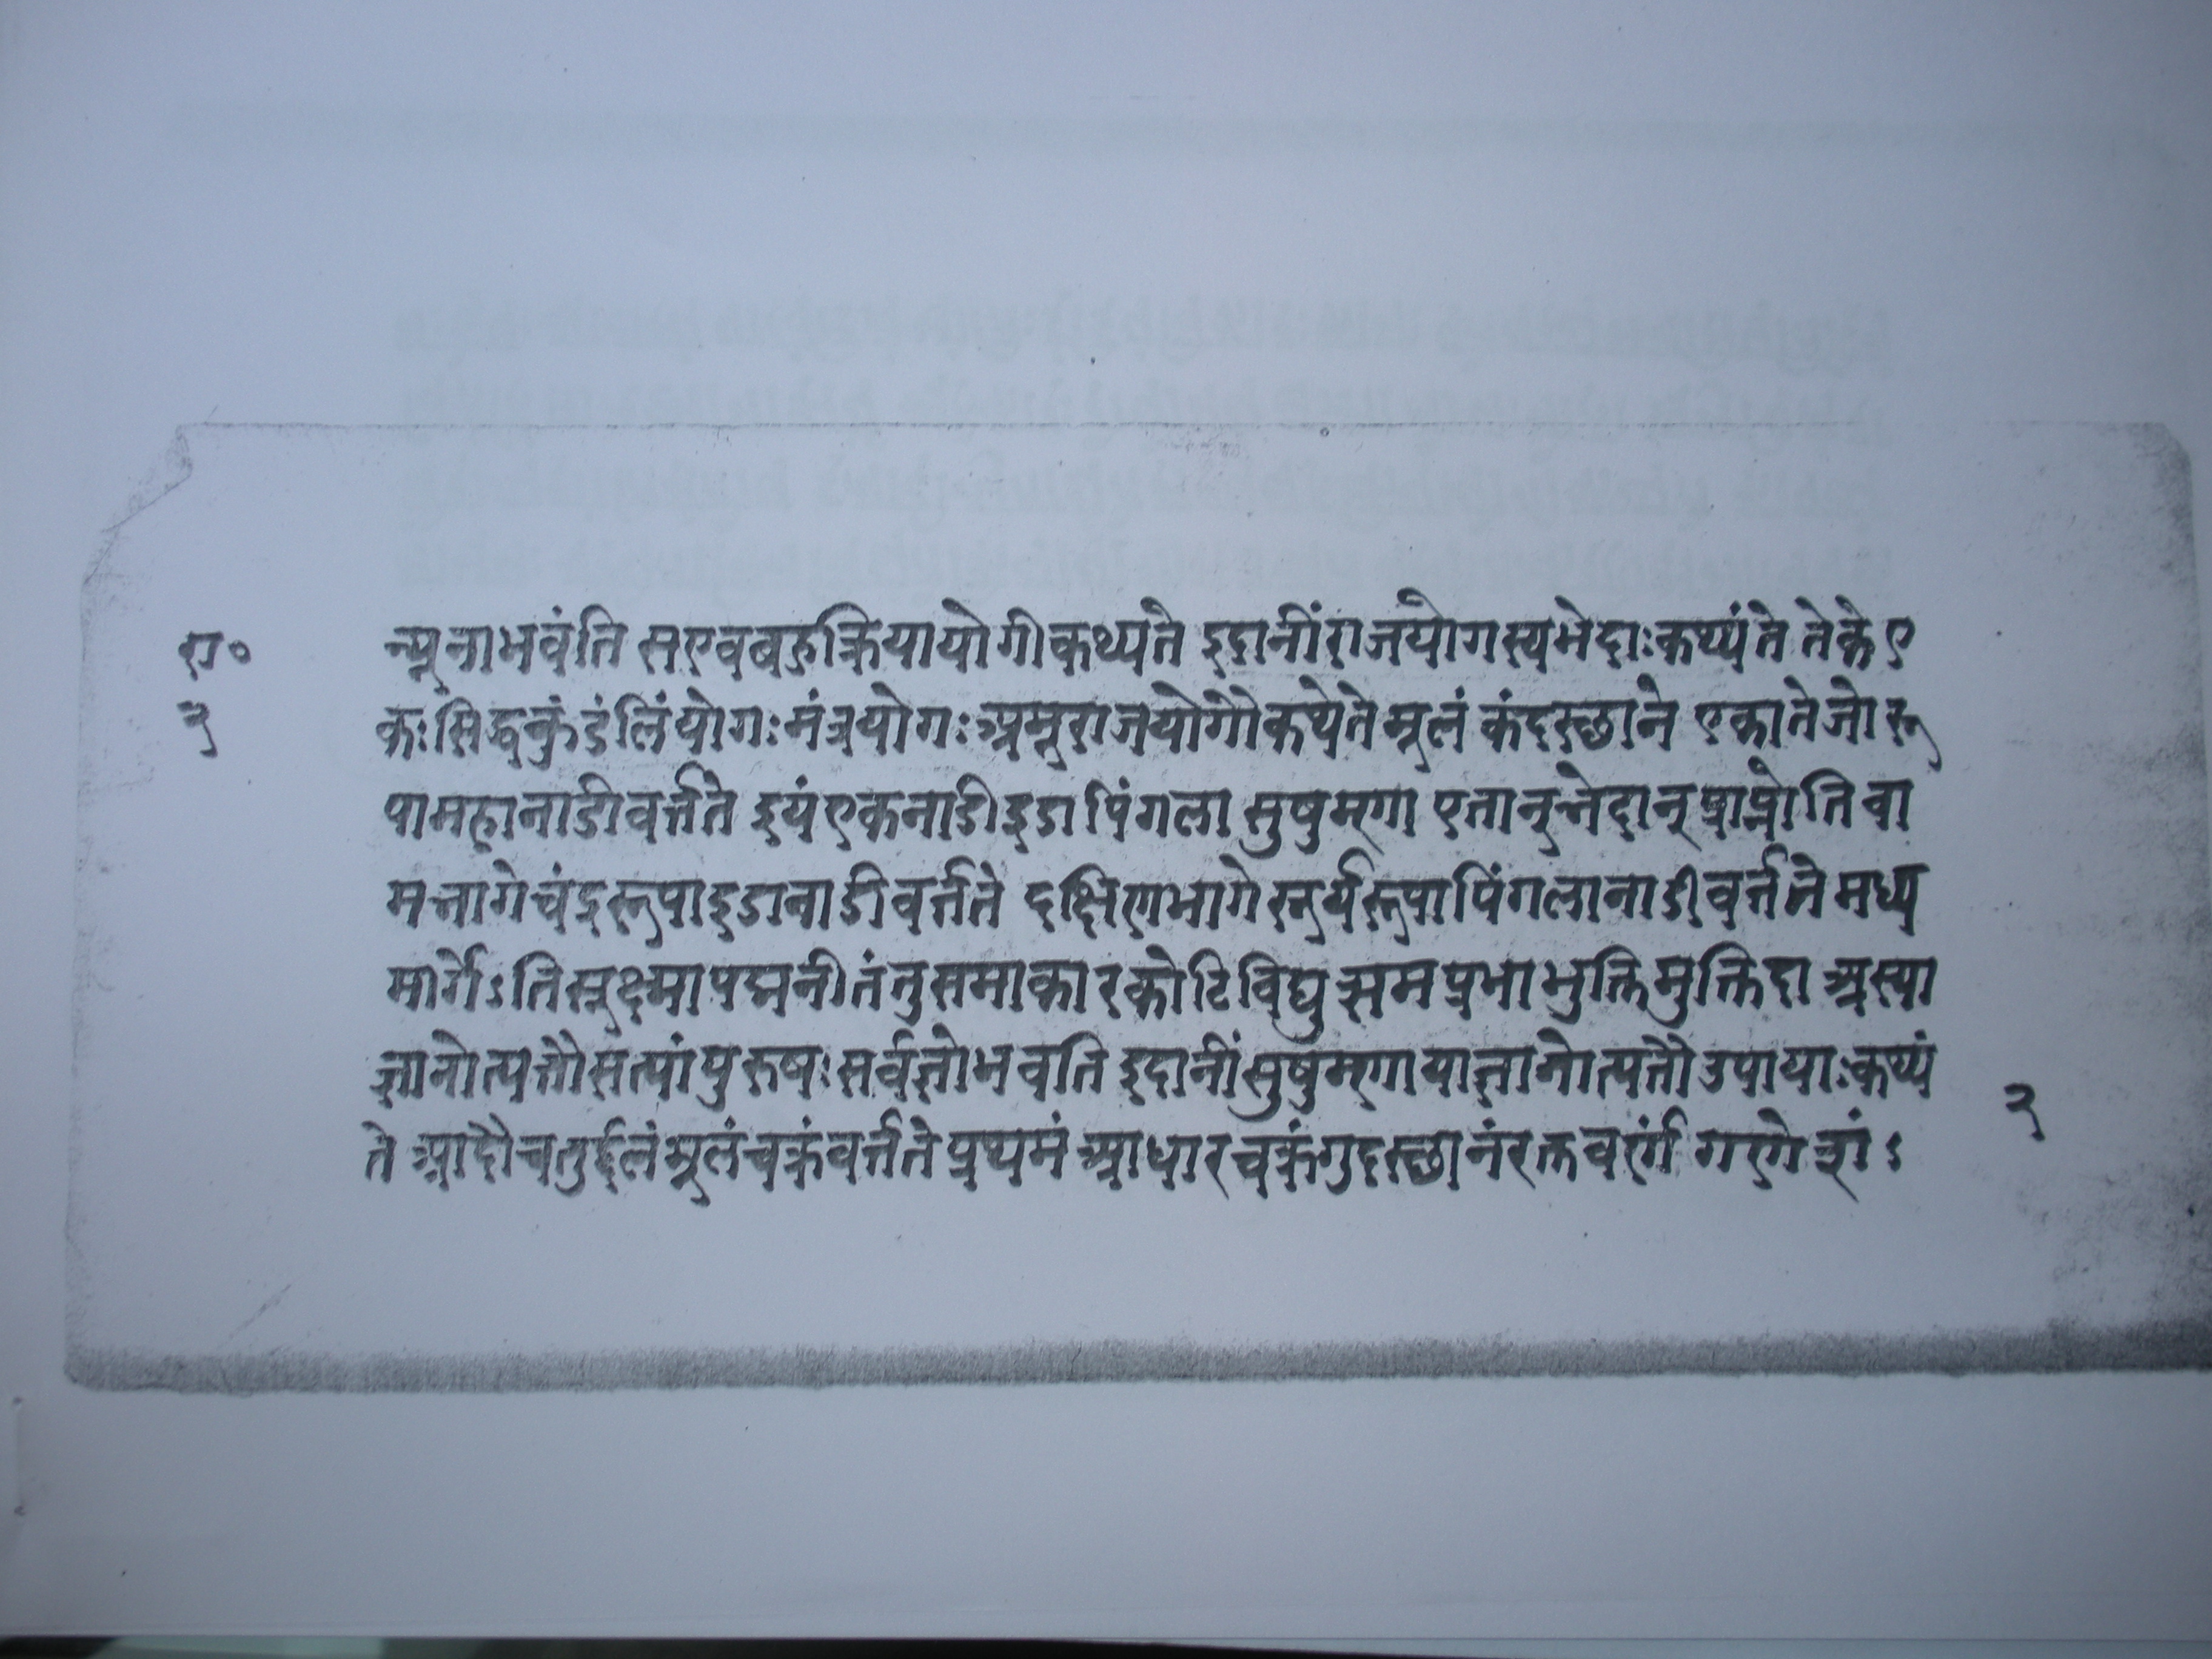 रा०
२
न्यूनाभवंति सएवबहुक्रियायोगीकथ्यते इदानींराजयोगस्यभेदाःकथ्यंते तेके ए
कः सिद्धकुंडंलिंयोगः मंत्रयोगः अमूराजयोगौकथेते मूलं कंदस्छाने एकातेजोरू
पामहानाडीवर्त्तते इयंएकनाडीइडापिंगला सुषुम्णा एतान्भेदान् प्राप्नोति वा
मभागेचंद्ररूपाइडानाडीवर्त्तते दक्षिणभागेसूर्यरूपापिंगलानाडीवर्त्तते मध्य
मार्गेऽतिसूक्ष्मापद्मनीतंतुसमाकारकोटिविद्युत्समप्रभाभुक्तिमुक्तिदा अस्या
ज्ञानोत्पत्तौसत्यांपुरुषः सर्वज्ञोभवति इदानींसुषुम्णायाज्ञानोत्पत्तौ उपायाःकथ्यं
ते आदौचतुर्द्दलंमूलंचक्रंवर्त्तते प्रथमं आधारचक्रंगुदस्छानंरक्तवर्णं गणेशं ऽ
२